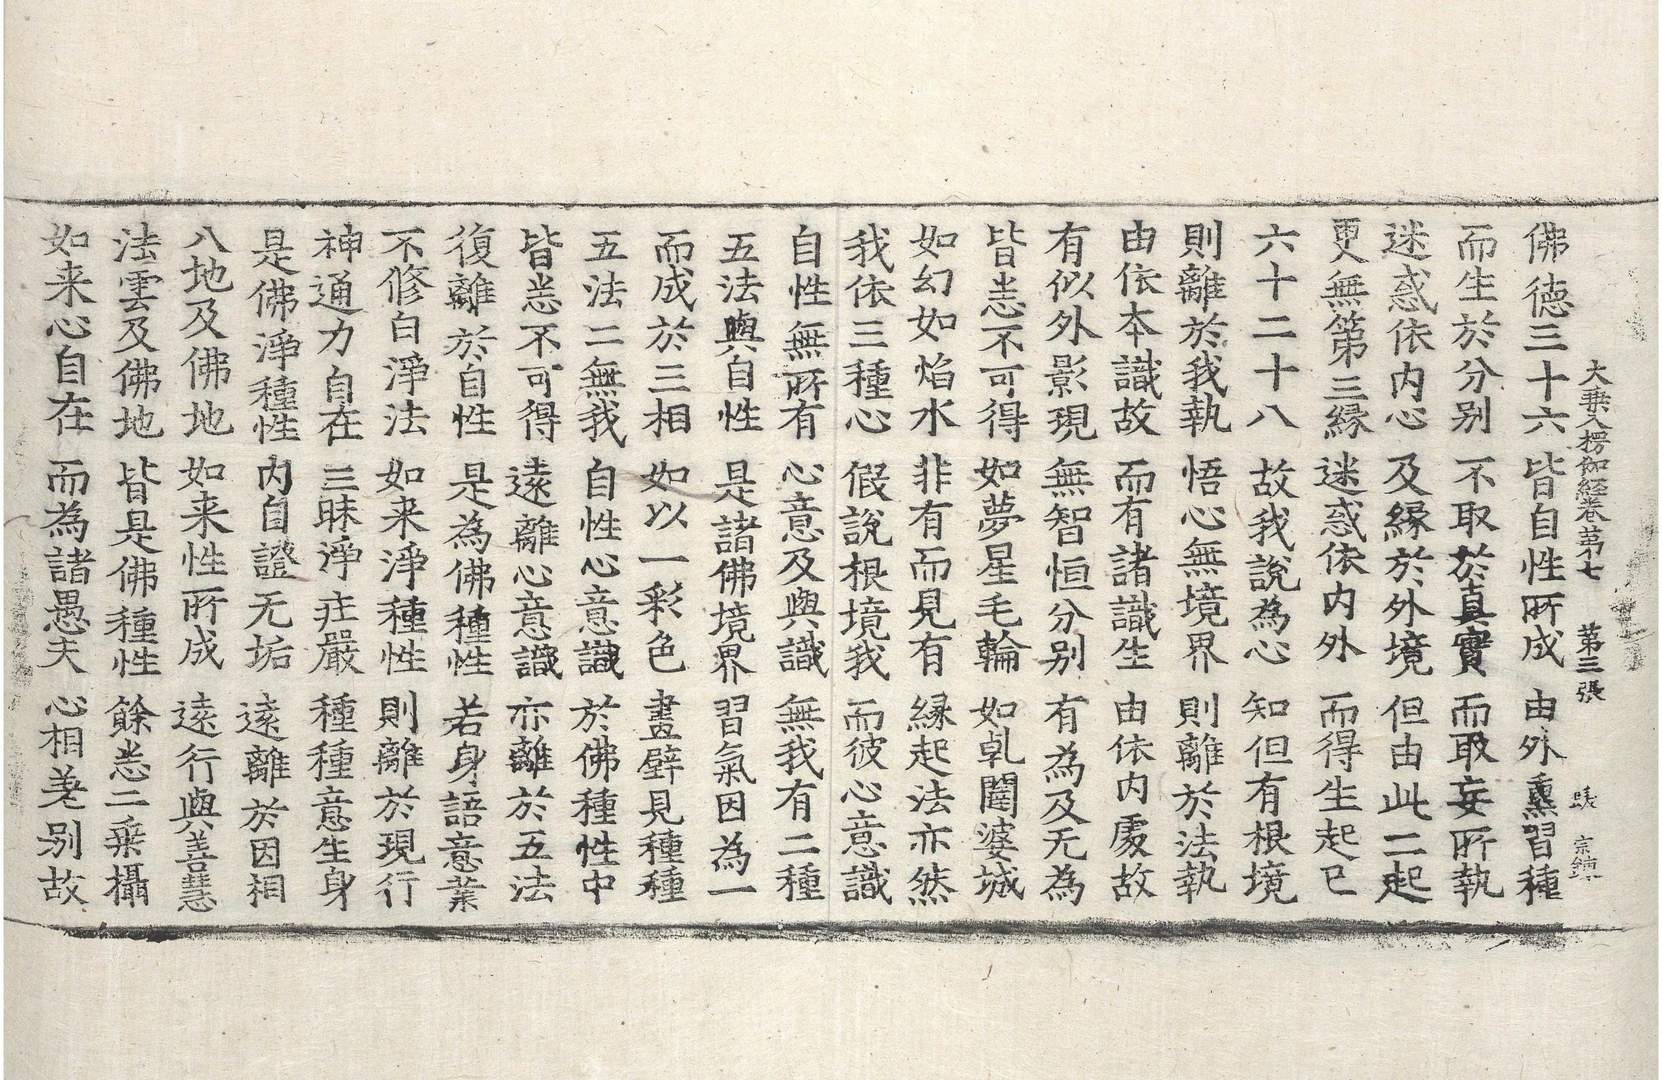 大乗入楞伽経卷苐七 苐三張
佛德三十六 皆自性所成 由外熏習種
而生於分别 不取於真實 而取妄所執
迷惑依内心 及縁於外境 但由此二起
更無第三縁 迷惑依内外 而得生起已
六十二十八 故我說為心 知但有根境
則離於我執 悟心無境界 則離於法執
由依本識故 而有諸識生 由依内處故
有似外影現 無智恒分别 有為及无為
皆悉不可得 如夢星毛輪 如乹闥婆城
如幻如焰水 非有而見有 縁起法亦然
我依三種心 假說根境我 而彼心意識
自性無所有 心意及與識 無我有二種
五法與自性 是諸佛境界 習氣因為一
而成於三相 如以一彩色 畫壁見種種
五法二無我 自性心意識 於佛種性中
皆悉不可得 遠離心意識 亦離於五法
復離於自性 是為佛種性 若身語意業
不修白淨法 如来淨種性 則離於現行
神通力自在 三昧淨莊嚴 種種意生身
是佛淨種性 内自證无垢 遠離於因相
八地及佛地 如来性所成 遠行與善慧
法雲及佛地 皆是佛種性 餘悉二乗攝
如来心自在 而為諸愚夫 心相差别故